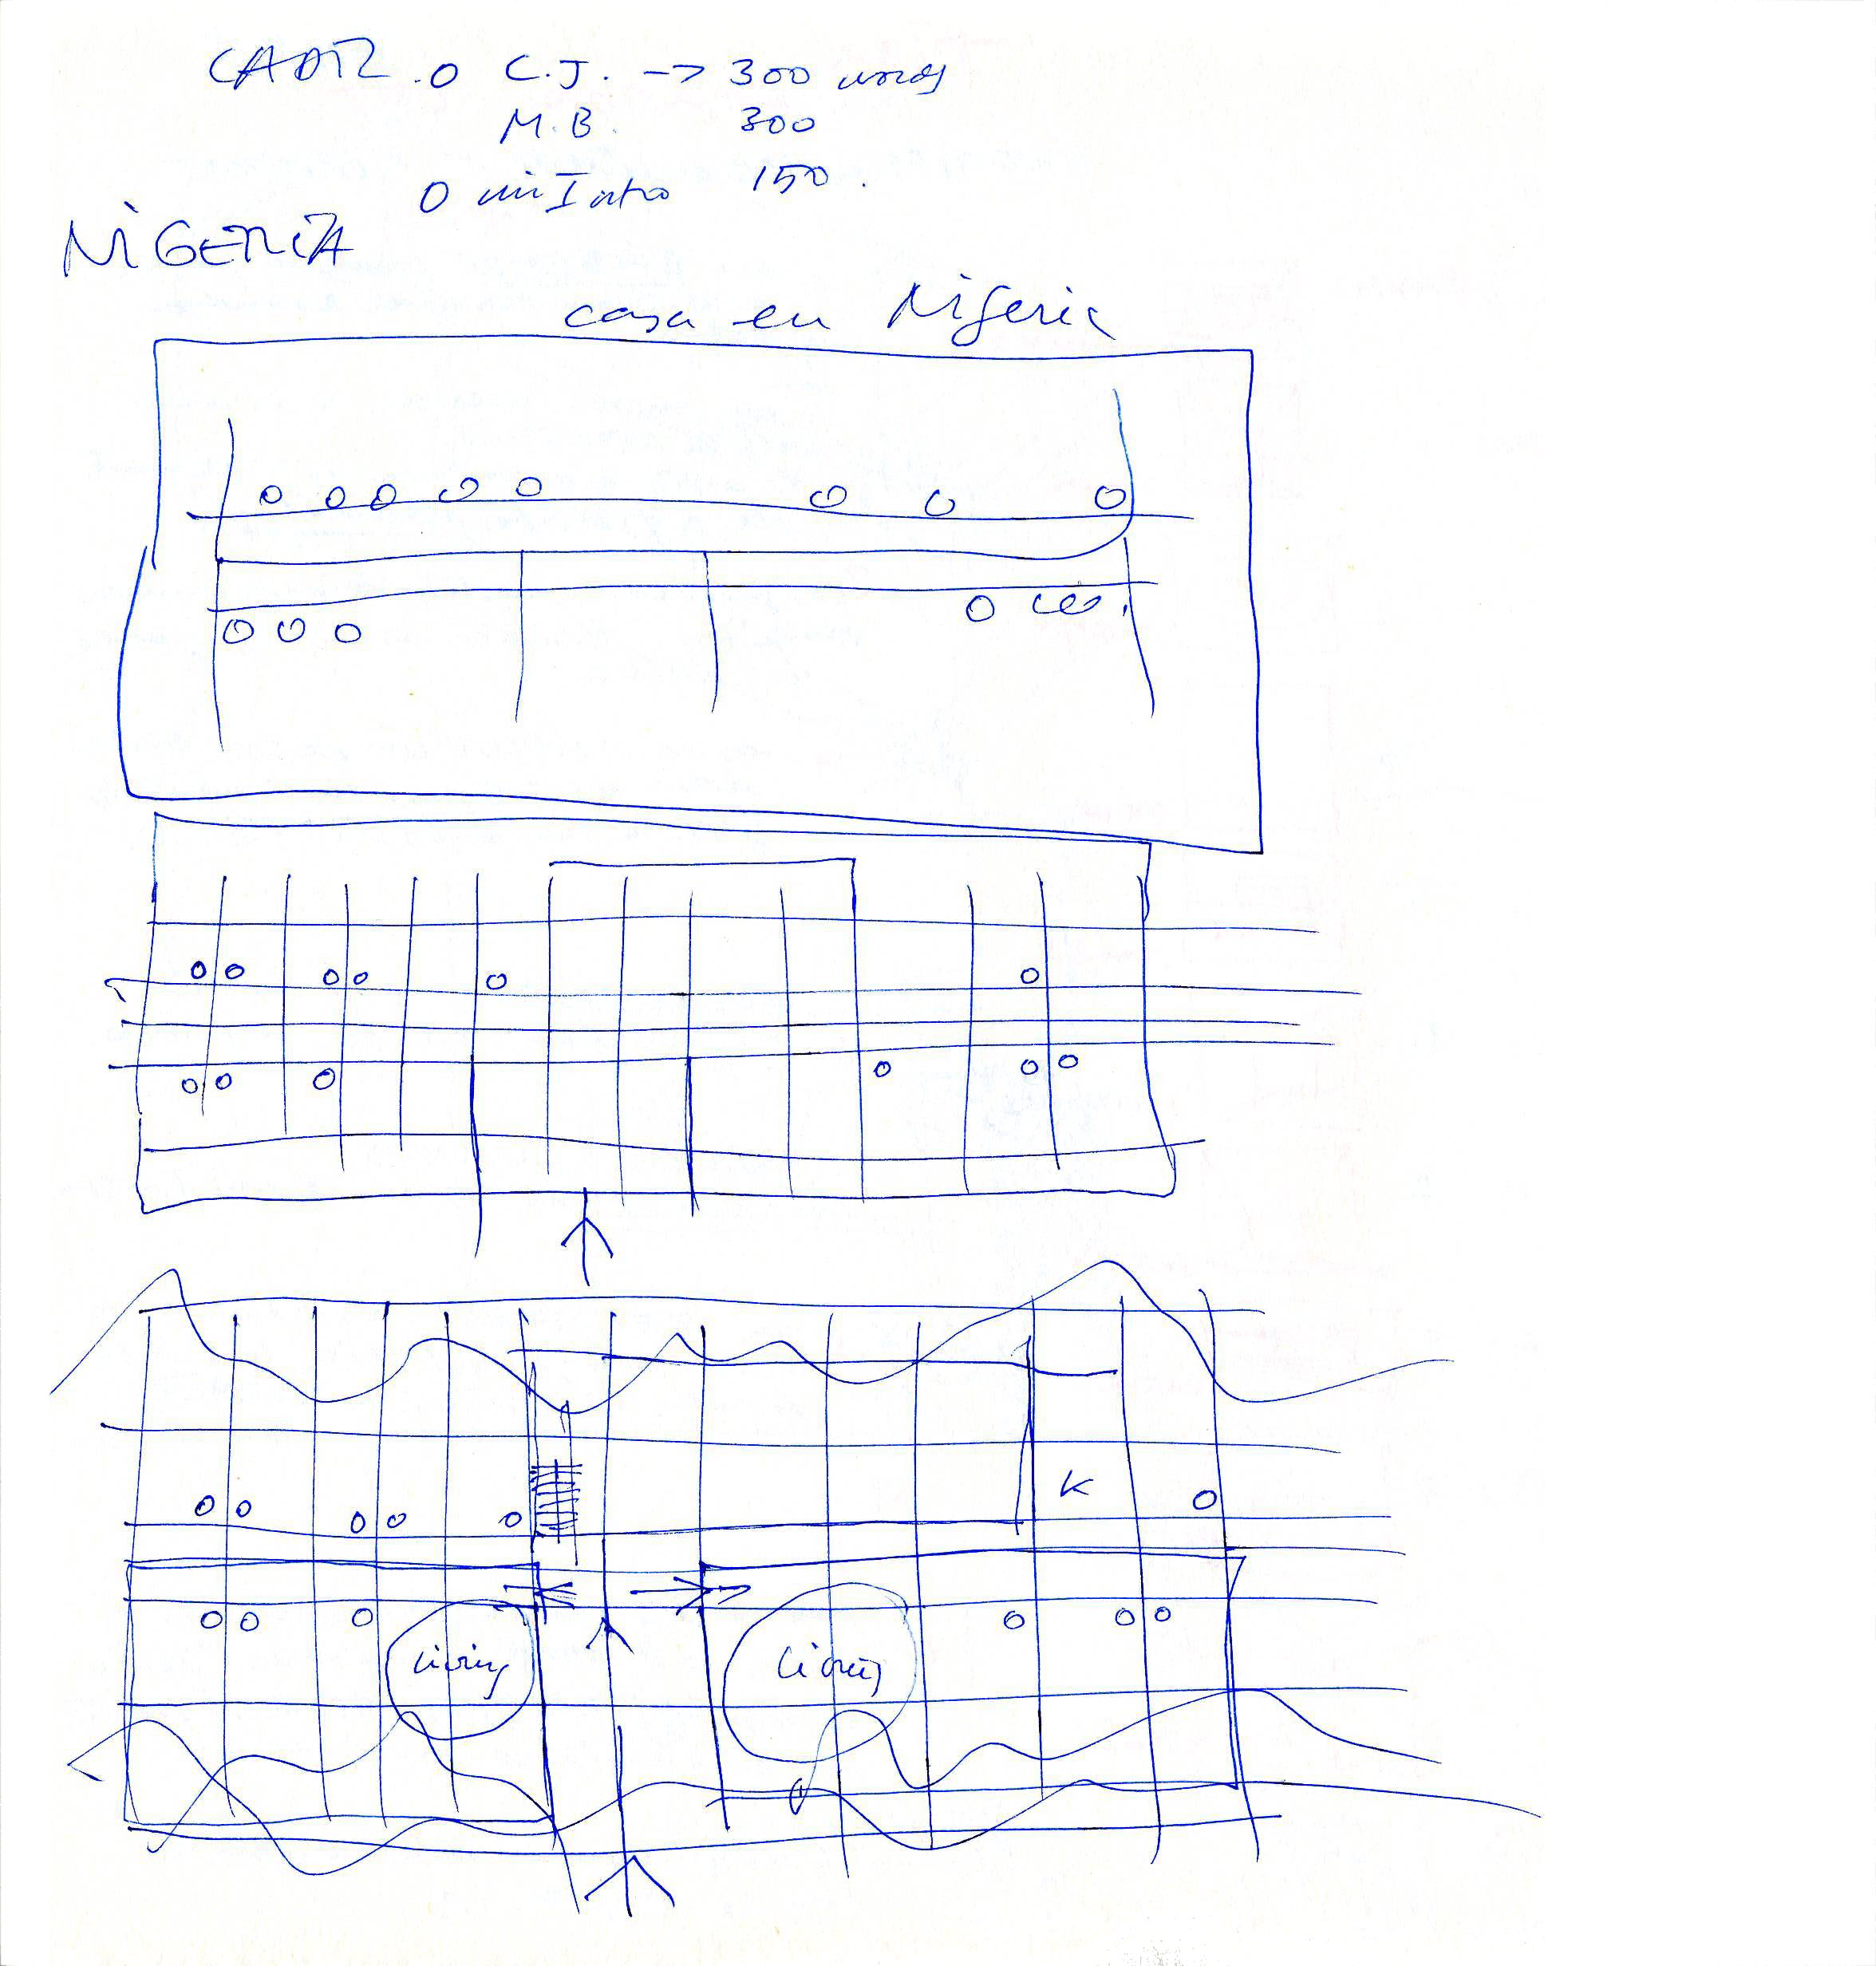 CADIZ . O C.J. -> 300 unds
M.B. 300
O 150.
NIGERIA
casa en Nigeria
K
living living